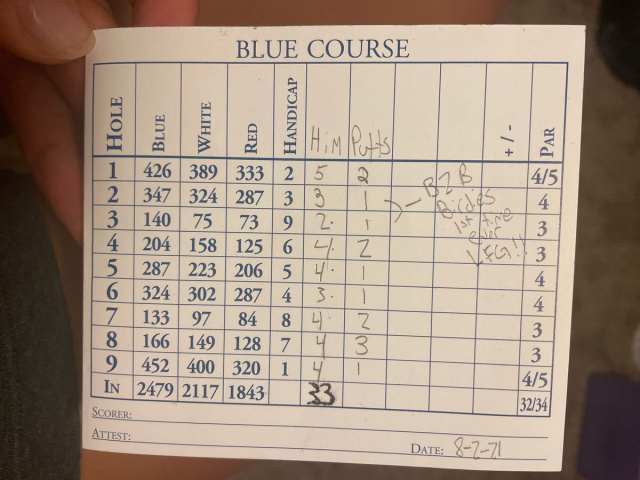 BLUE COURSE
HOLE BLUE WHITE RED HANDICAP Him Putts + / - PAR
1 426 389 333 2 5 2 4/5
2 347 324 287 3 3 1 B2B 4
3 140 75 73 9 2. 1 Birdies 3
1st time
4 204 158 125 6 4. 2 ever 3
LFG!!
5 287 223 206 5 4. 1 4
6 324 302 287 4 3. 1 4
7 133 97 84 8 4. 2 3
8 166 149 128 7 4 3 3
9 452 400 320 1 4 1 4/5
IN 2479 2117 1843 33 32/34
SCORER:
ATTEST:
DATE: 8-2-21